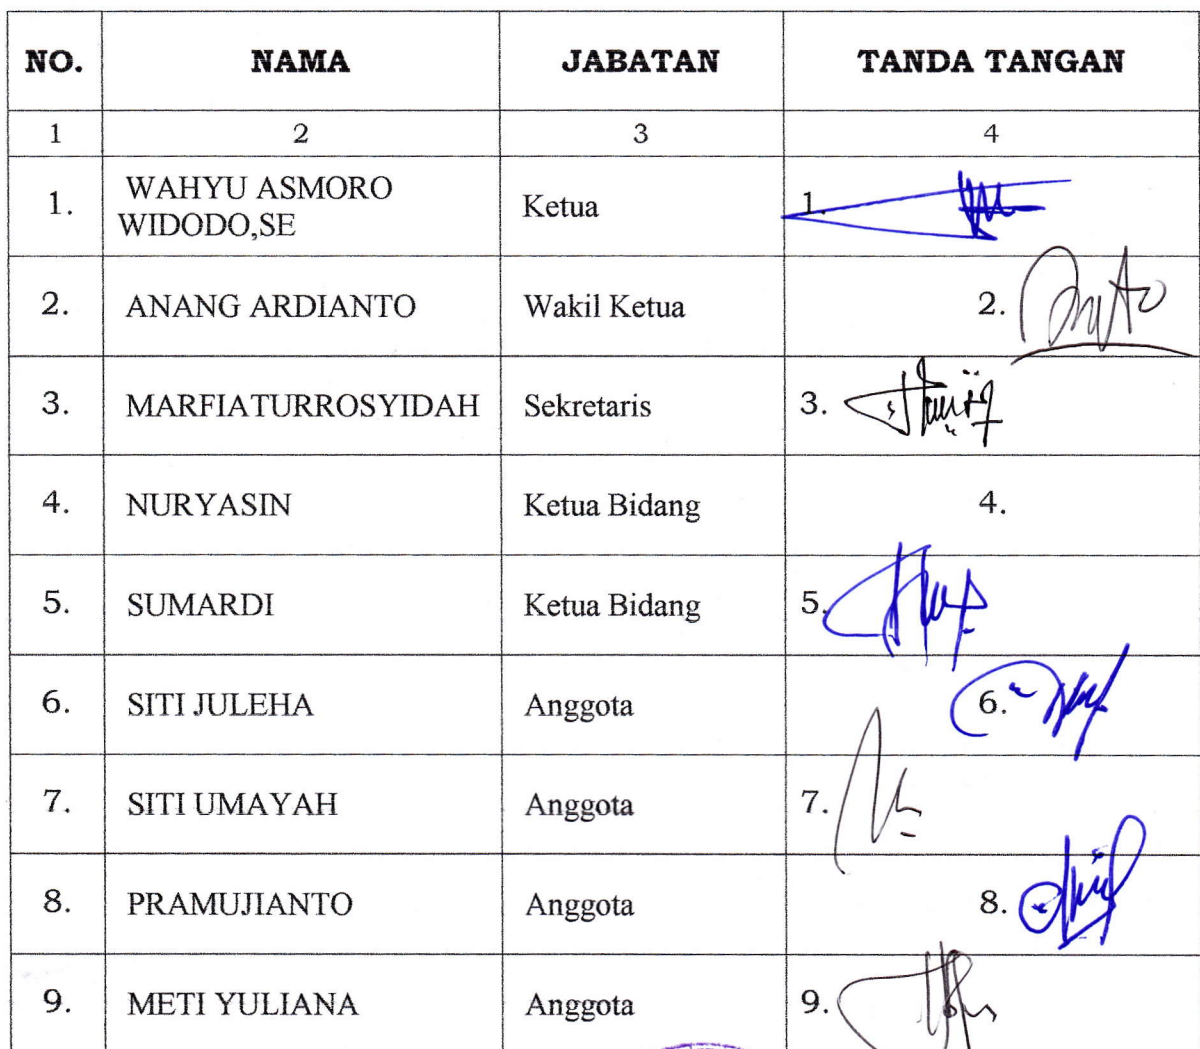 NO. NAMA JABATAN TANDA TANGAN
1 2 3 4
1. WAHYU ASMORO
WIDODO,SE Ketua 1.
2. ANANG ARDIANTO Wakil Ketua 2.
3. MARFIATURROSYIDAH Sekretaris 3.
4. NURYASIN Ketua Bidang 4.
5. SUMARDI Ketua Bidang 5.
6. SITI JULEHA Anggota 6.
7. SITI UMAYAH Anggota 7.
8. PRAMUJIANTO Anggota 8.
9. METI YULIANA Anggota 9.